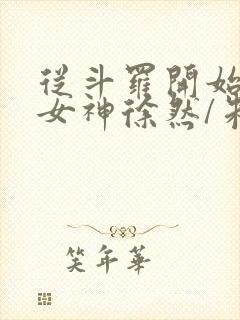 從斗羅開始
女神徐然/朱
笑年華